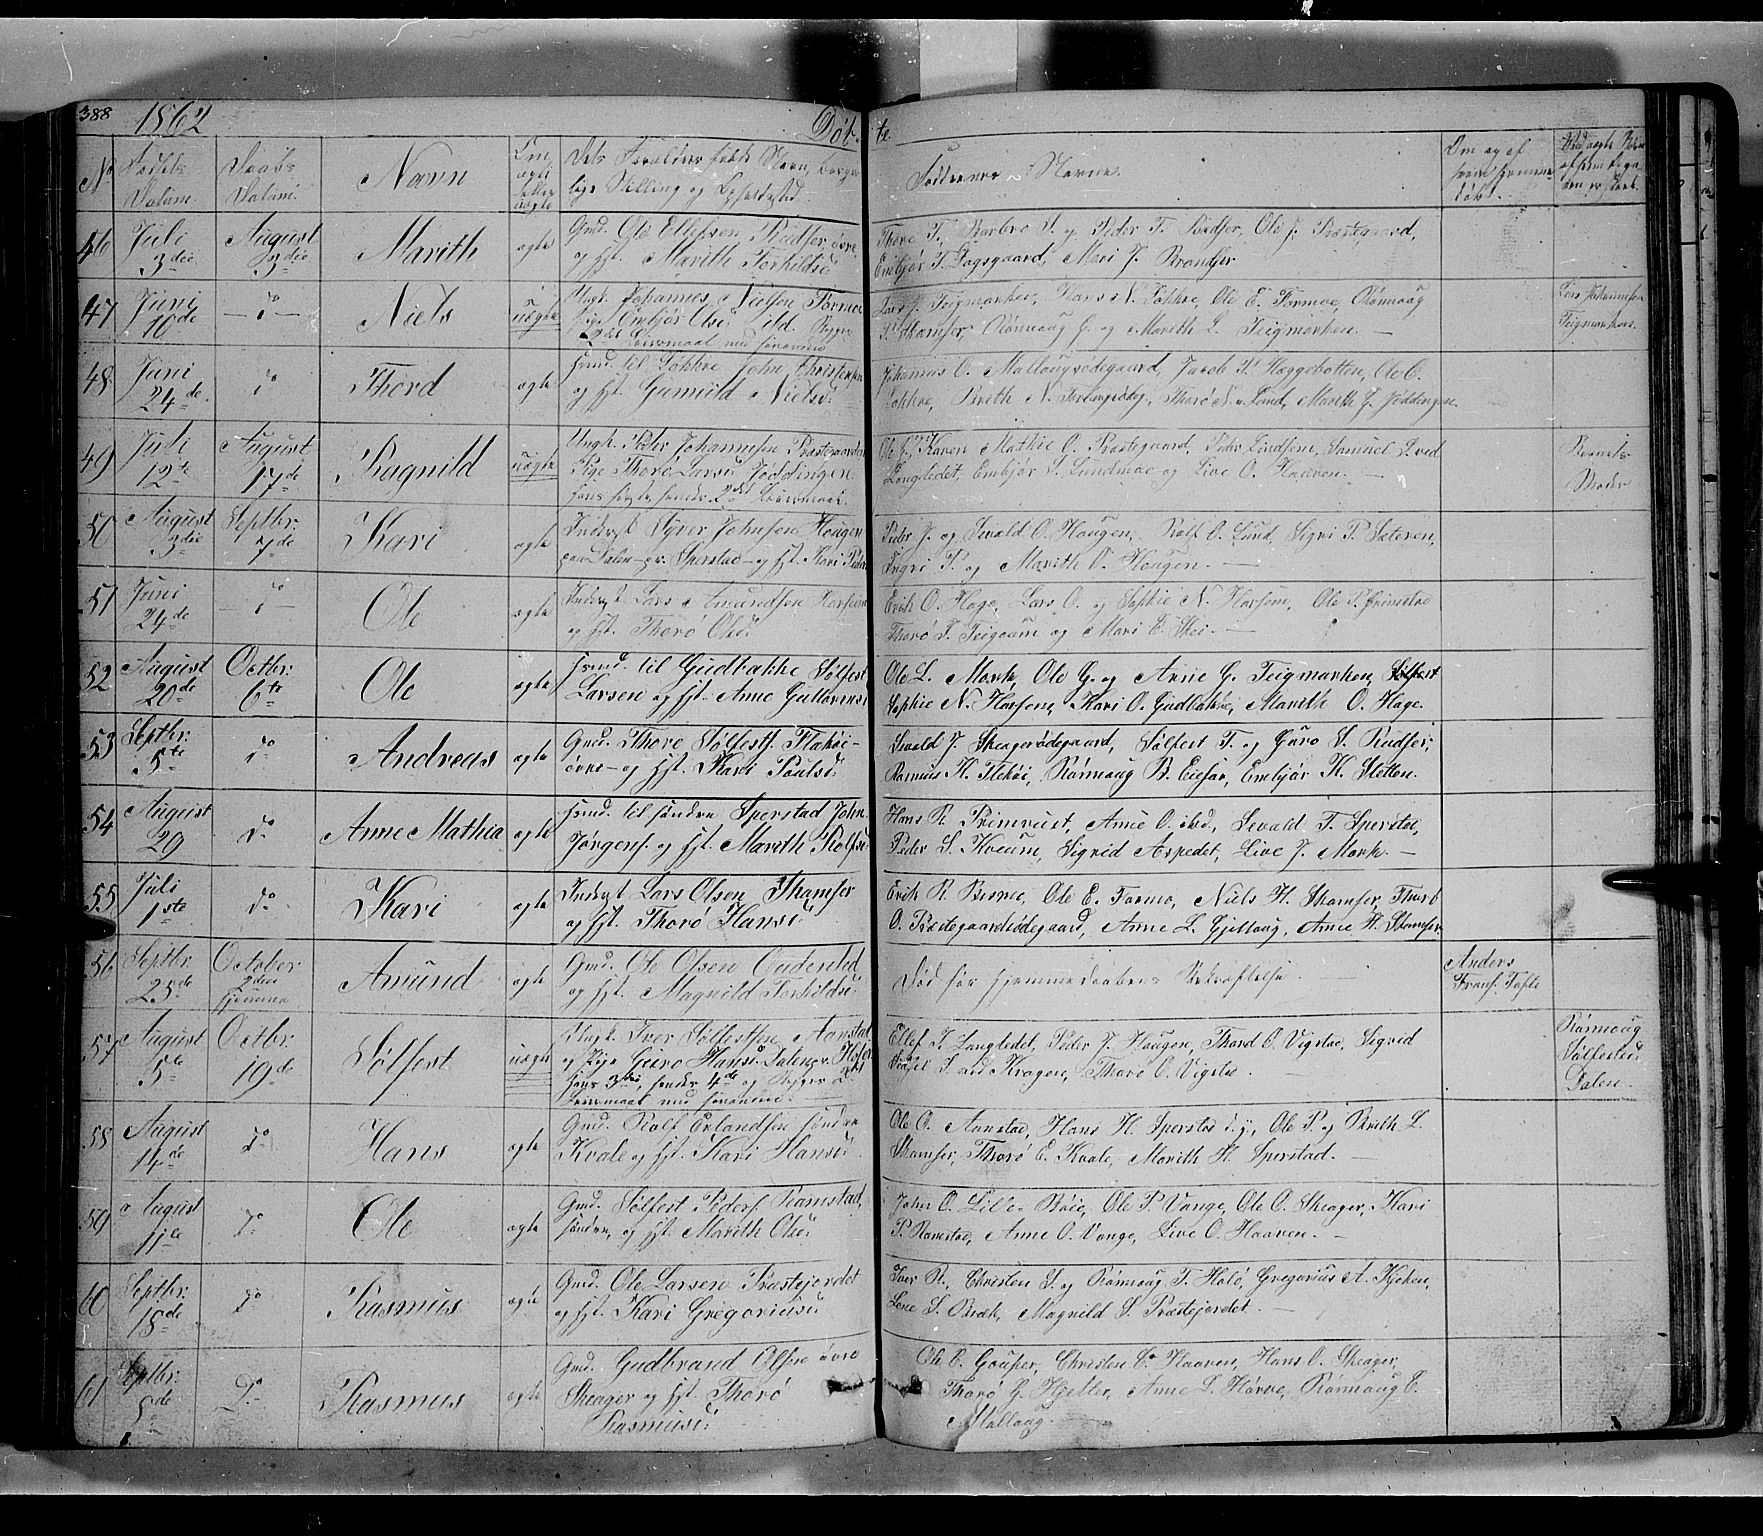 388 1862 Døb- te.
No Fødsels- Datum. Daabs- Datum. Navn Om ægte eller uægte Dets Forældres fulde Navn, borger-
lige Stilling og Opholdssted.
Faddernes Navne. Om og af hvem hjemme- døbt.
46 Juli 3die August 3die Marith ægte Gmd. Ole Ellefsen Rudser øvre
og Hst. Marith Torkildsd:
Thore T., Barbro S. og Peder T. Rudser, Ole J. Præstegaard,
Embjør T. Dagsgaard, Mari J. Brandser
47 Juni 10de do Niels uægte Ungk. Johannes Nielsen Formoe
Pige Embjør Olsd:
Leiermaal med
Lars J. Teigmarken, Hans N. Løkkre, Ole E. Formoe, Rønnoug
P. Skamser, Rønnoug G. og Marith L. Teigmarken. —
Lars Johannesen
Teigmarken.
48 Juni 24de do Thord ægte Hmd. til Løkkre John Christensen
og Hst. Gunnild Nielsd:
Johannes O. Mallougsødegaard, Jacob P. Hæggebotten, Ole O.
Løkkre, Brith N. Thord N. Lund, Marith J. Jøddingen.
49 Juli 12te August 17de Ragnild uægte Ungk. Peder Johannesen Præstegaarden
Pige Thore Larsd: Jøddingen.
hans første, hendes 2det Leiermaal.
Ole J., Karen Mathie O. Præstegaard, Peder Lindsøe, Samuel I. ved
Longtedet, Embjør S. Lundmoe og Live O. Haaven. —
Barnets
Moder
50 August 3die Septbr. 7de Kari ægte Inderst Syver Johnsen Hougen
paa Dalen p. v. Sperstad og Hst. Kari Peders
Peder J. og Sevald O. Haugen, Rolf O. Lund, Sigri P. Sæteren,
Ingri P. og Marith O. Hougen. —
51 Juni 24de do Ole ægte Inderst Lars Amundsen Horsem
og Hst. Thorø Olsd:
Erik O. Hage, Lars O. og Sophie N. Horsem, Ole P. Grimstad
Thorø T. Teigum og Mari E. Skei. —
52 August 20de Octbr. 6te Ole ægte Hmd. til Gudbakke Sølfest
Larsen og Hst. Anne Guttormsd
Ole L. Mork, Ole G. og Anne G. Teigmarken, Sølfest
Sophie N. Horsem, Kari O. Gudbakke, Marith O. Hage.
53 Septbr. 5te do Andreas ægte Gmd. Thore Sølfests. Flekøi-
øvre- og Hst. Kari Poulsd:
Sevald J. Skeagersødegaard, Sølfest T. og Guro S. Rudser,
Rasmus K. Flekøi, Rønnoug B. Eiesar, Embjør K. Sletten.
54 August 29 do Anne Mathia ægte Hmd. til søndre Sperstad John
Jørgens. og Hst. Marith Rolfsd:
Hans R. Primrust, Anne O. ibid, Sevald T. Sperstad,
Peder S. Kveum, Sigrid Aspedet, Live J. Mork. —
55 Juli 1ste do Kari ægte Inderst Lars Olsen Skamser
og Hst. Thorø Hansd:
Erik R. Bismoe, Ole E. Formo, Niels H. Skamser, Thorø
O. Præstegaardsødegaard, Anne L. Gjellaug, Anne H. Skamser
56 Septbr. 25de October 2den hjemme Amund ægte Gmd. Ole Olsen Enderstad
og Hst. Magnild Torkildsd:
Død før Hjemmedaabens Bekræftelse. —
Anders
Frans. Tofte
57 August 5te Octbr. 19de Sølfest uægte Ungk. Iver Sølfestsen Aanstad
og Pige Guro Hansd:
hans 3die, hendes 4de og Begges 2det
Leiermaal med hinanden.
Ellef T. Longtedet, Peder J. Haugen, Thord O. Vigstad, Sigrid
S. ved Kragen, Thorø O. Vigstad —
Rønnoug
Sølfestsd
Dalen.
58 August 14de do Hans ægte Gmd. Rolf Erlandsen søndre
Kvale og Hst. Kari Hansd:
Ole O. Aanstad, Hans H. Sperstad d. y., Ole P. og Brith L.
Skamser, Thorø E. Kvale, Marith H. Sperstad. —
59 August 11te do Ole ægte Gmd. Sølfest Peders. Ramstad,
søndre, og Hst. Marith Olsd:
John O. Lille-Bøie, Ole P. Vange, Ole O. Skeager, Kari
P. Ramstad, Anne O. Vange, Live O. Haaven. —
60 Septbr. 18de do Rasmus ægte Gmd. Ole Larsen Præstejordet
og Hst. Kari Gregoriusd
Iver R., Christen S. og Rønnoug T. Holø, Gregorius A. Kjøken,
Lene S. Bræk, Magnild S. Præstejordet. —
61 Septbr. 5de do Rasmus ægte Gmd. Gudbrand Olsen øvre
Skeager og Hst. Thorø
Rasmusd:
Ole E. Gouper, Christen E. Haaven, Hans O. Skeager,
Thorø G. Hjelter, Anne L. Hørve, Rønnoug E.
Mallaug. —